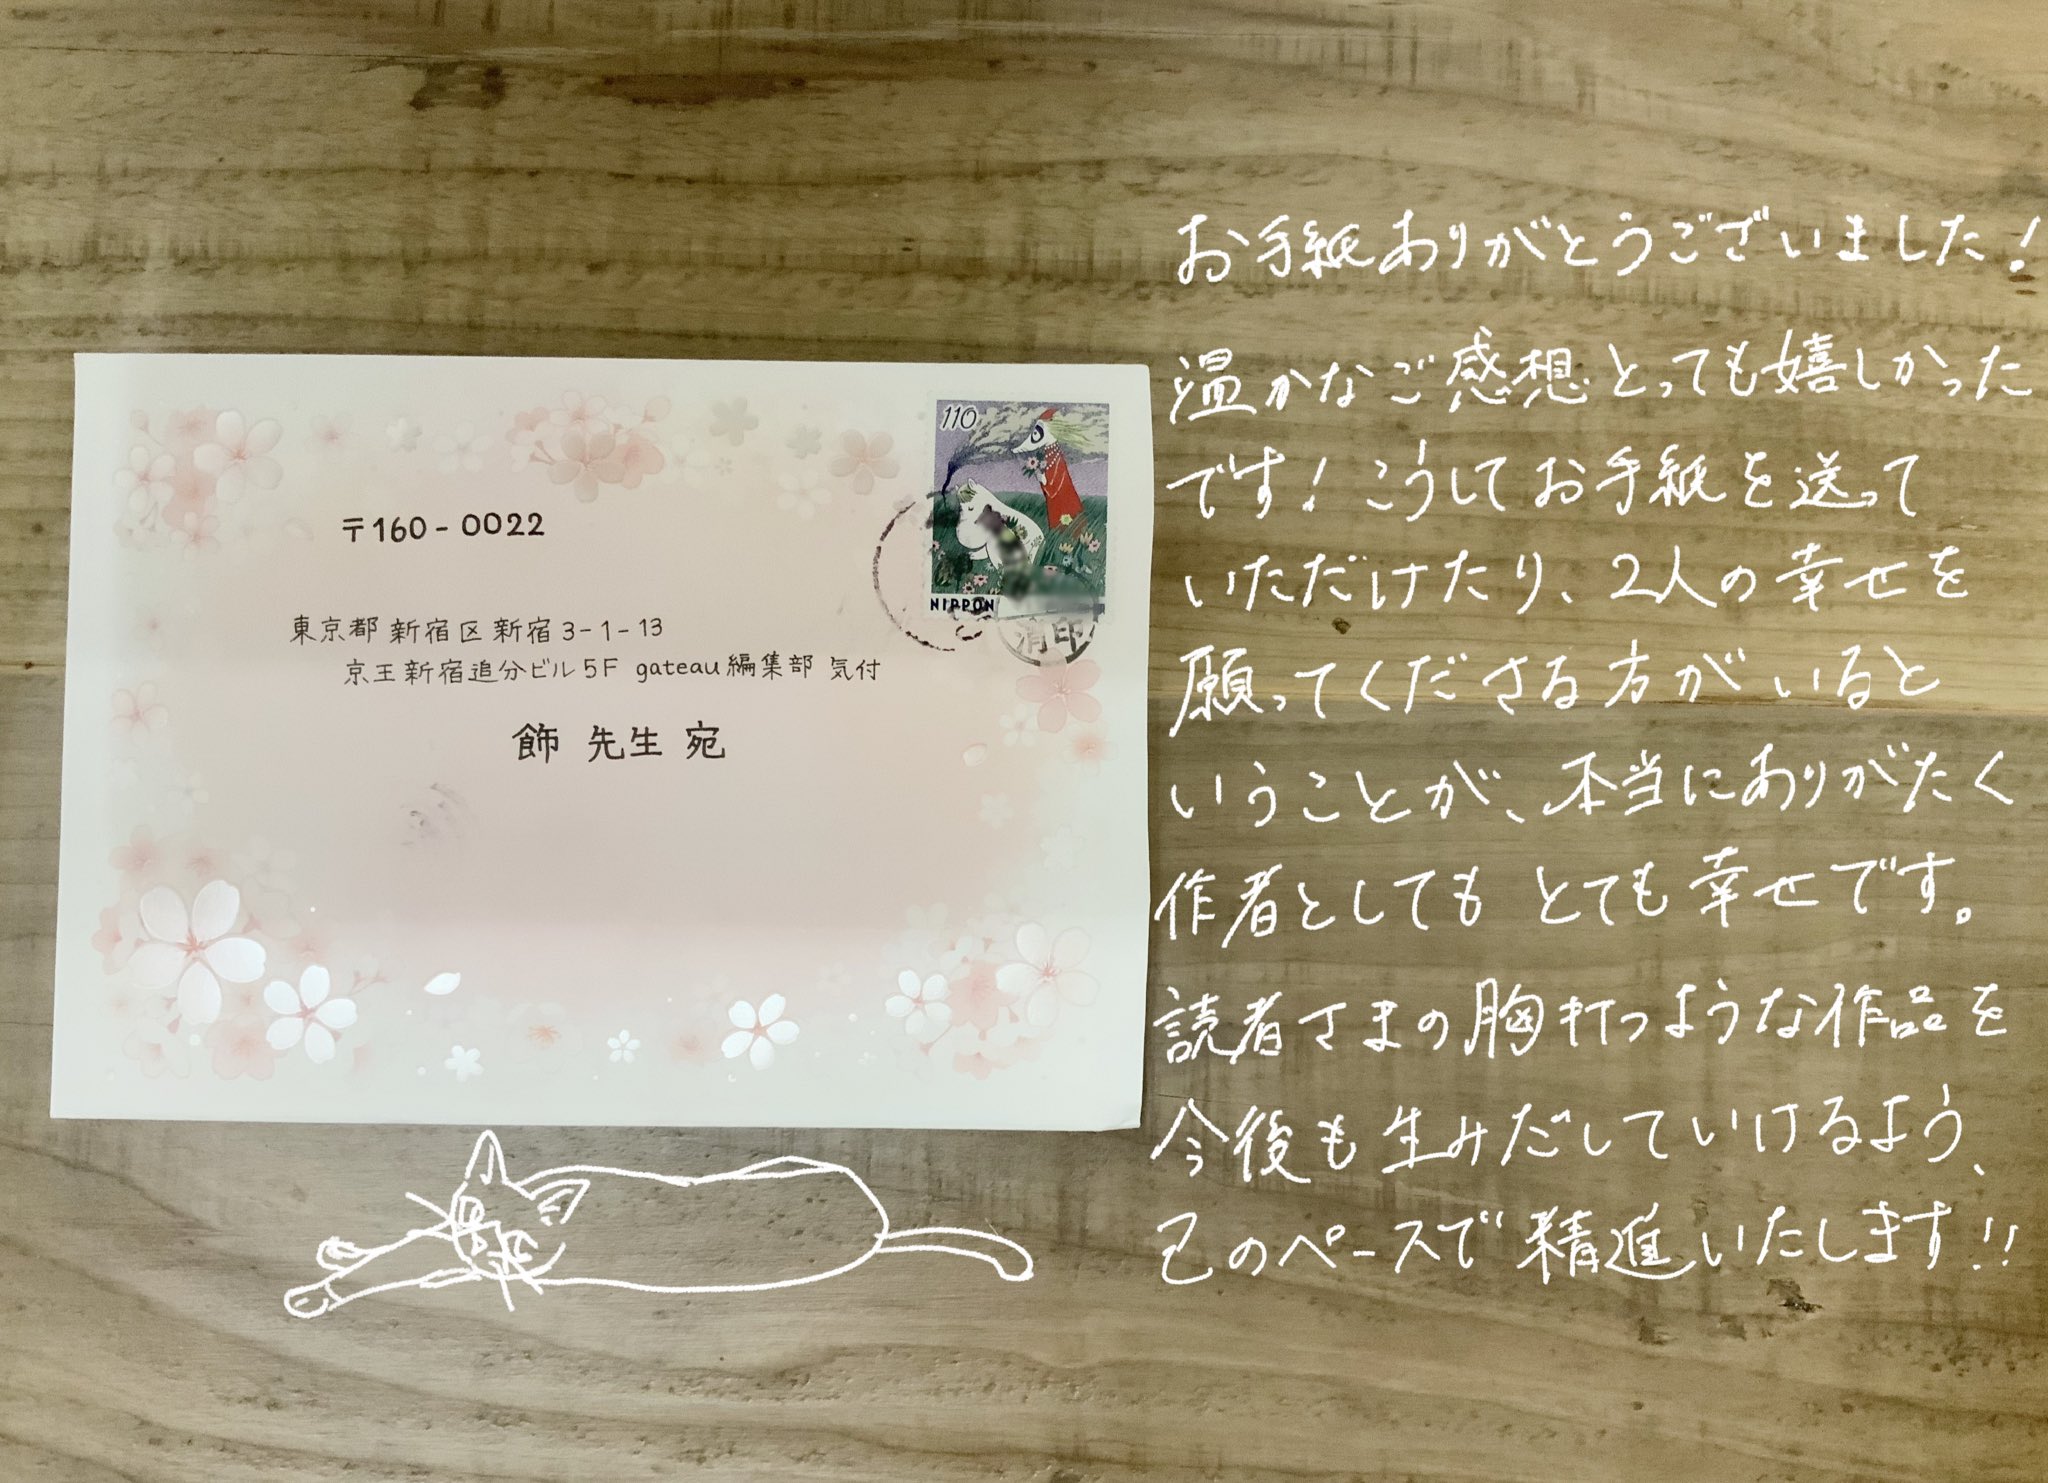 〒160-0022
東京都 新宿区 新宿 3-1-13
京王新宿追分ビル 5F gateau 編集部 気付
飾 先生 宛
110
NIPPON
消印
お手紙ありがとうございました!
温かなご感想とっても嬉しかった
です! こうしてお手紙を送って
いただけたり、2人の幸せを
願ってくださる方がいると
いうことが、本当にありがたく
作者としても とても幸せです。
読者さまの胸打つような作品を
今後も生みだしていけるよう、
己のペースで精進いたします!!